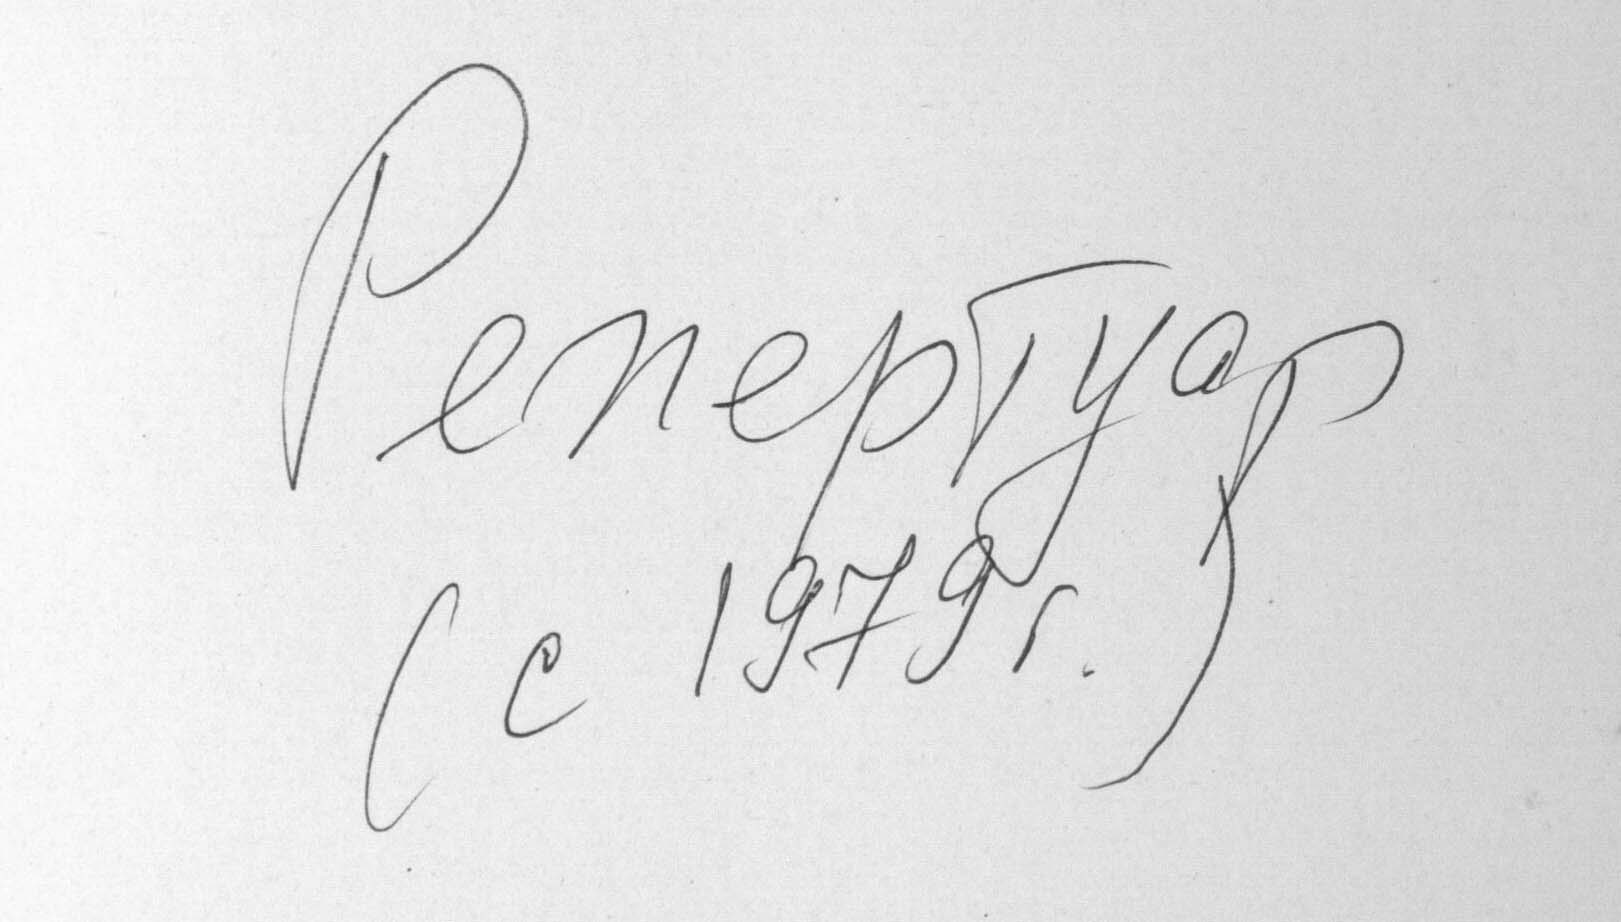 Репертуар
(с 1979 г.)